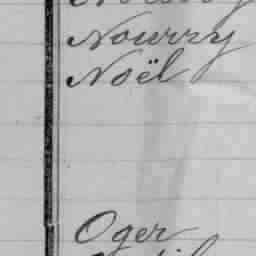 Nourry
Noël
Oger